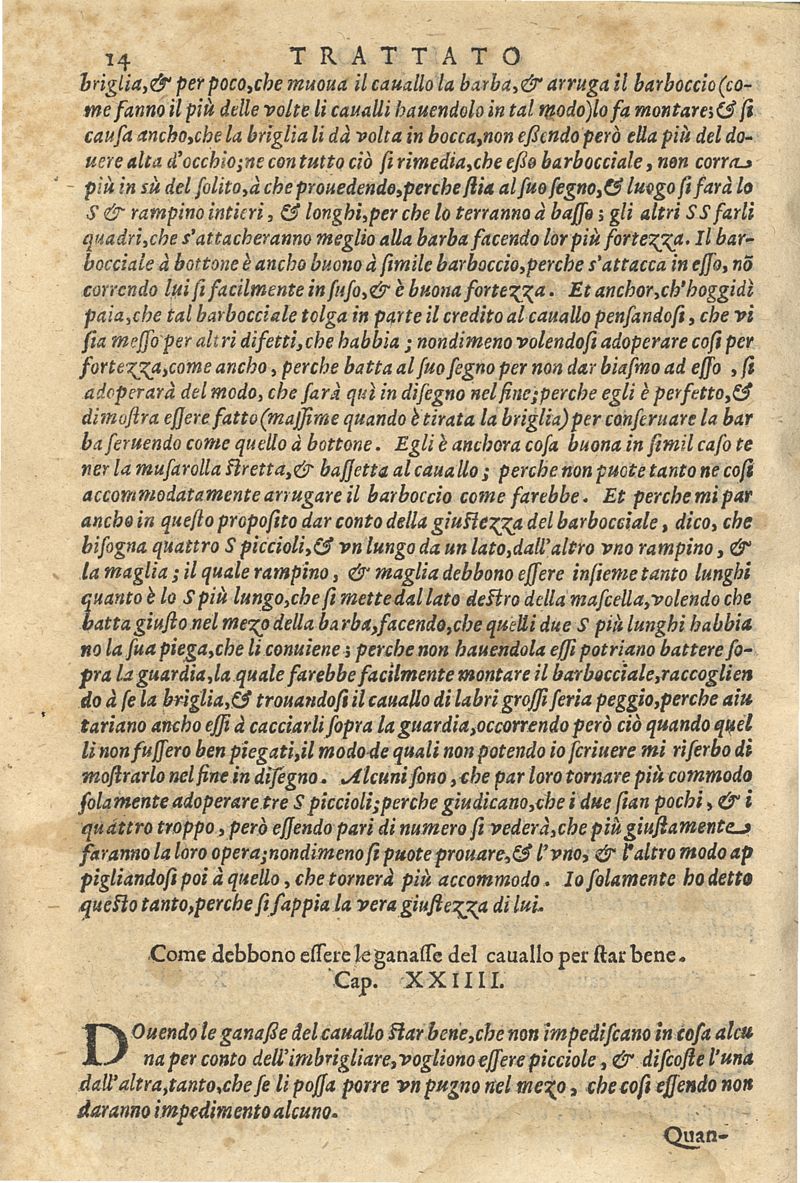 14 TRATTATO
briglia, & per poco, che muoua il cauallo la barba, & arruga il barboccio (co-
me fanno il più delle volte li caualli hauendolo in tal modo) lo fa montare; & si
causa ancho, che la briglia li dà volta in bocca, non eßendo però ella più del do-
uere alta d'occhio; ne con tutto ciò si rimedia, che eßo barbocciale, non corra
più in sù del solito, à che prouedendo, perche stia al suo segno, & luogo si farà lo
S & rampino intieri, & longhi, per che lo terranno à basso; gli altri SS farli
quadri, che s'attacheranno meglio alla barba facendo lor più fortezza. Il bar-
bocciale à bottone è ancho buono à simile barboccio, perche s'attacca in esso, nõ
correndo lui si facilmente in suso, & è buona fortezza. Et anchor, ch'hoggidì
paia, che tal barbocciale tolga in parte il credito al cauallo pensandosi, che vi
sia messo per altri difetti, che habbia; nondimeno volendosi adoperare cosi per
fortezza, come ancho, perche batta al suo segno per non dar biasmo ad esso, si
adoperarà del modo, che sarà quì in disegno nel fine; perche egli è perfetto, &
dimostra essere fatto (massime quando è tirata la briglia) per conseruare la bar
ba seruendo come quello à bottone. Egli è anchora cosa buona in simil caso te
ner la musarolla stretta, & bassetta al cauallo; perche non puote tanto ne cosi
accommodatamente arrugare il barboccio come farebbe. Et perche mi par
ancho in questo proposito dar conto della giustezza del barbocciale, dico, che
bisogna quattro S piccioli, & vn lungo da un lato, dall'altro vno rampino, &
la maglia; il quale rampino, & maglia debbono essere insieme tanto lunghi
quanto è lo S più lungo, che si mette dal lato destro della mascella, volendo che
batta giusto nel mezo della barba, facendo, che quelli due S più lunghi habbia
no la sua piega, che li conuiene; perche non hauendola essi potriano battere so-
pra la guardia, la quale farebbe facilmente montare il barbocciale, raccoglien
do à se la briglia, & trouandosi il cauallo di labri grossi seria peggio, perche aiu
tariano ancho essi à cacciarli sopra la guardia, occorrendo però ciò quando quel
li non fussero ben piegati, il modo de quali non potendo io scriuere mi riserbo di
mostrarlo nel fine in disegno. Alcuni sono, che par loro tornare più commodo
solamente adoperare tre S piccioli; perche giudicano, che i due sian pochi, & i
quattro troppo, però essendo pari di numero si vederà, che più giustamente
faranno la loro opera; nondimeno si puote prouare, & l'vno, & l'altro modo ap
pigliandosi poi à quello, che tornerà più accommodo. Io solamente ho detto
questo tanto, perche si sappia la vera giustezza di lui.
Come debbono essere le ganasse del cauallo per star bene.
Cap. XXIIII.
DOuendo le ganaße del cauallo star bene, che non impediscano in cosa alcu
na per conto dell'imbrigliare, vogliono essere picciole, & discoste l'una
dall'altra, tanto, che se li possa porre vn pugno nel mezo, che cosi essendo non
daranno impedimento alcuno.
Quan-